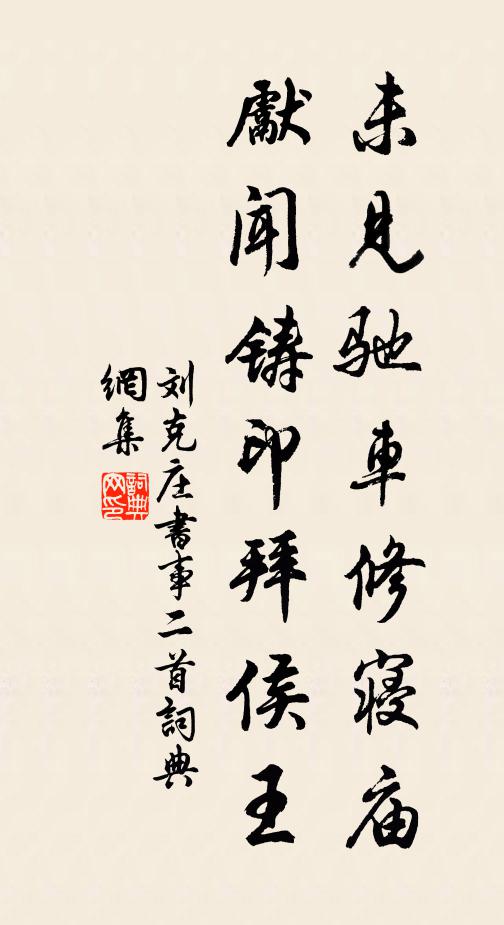 未見馳車修寢庙
獻闻鑄印拜侯王
刘克庄書事二首詞典
網集
詞典
网印